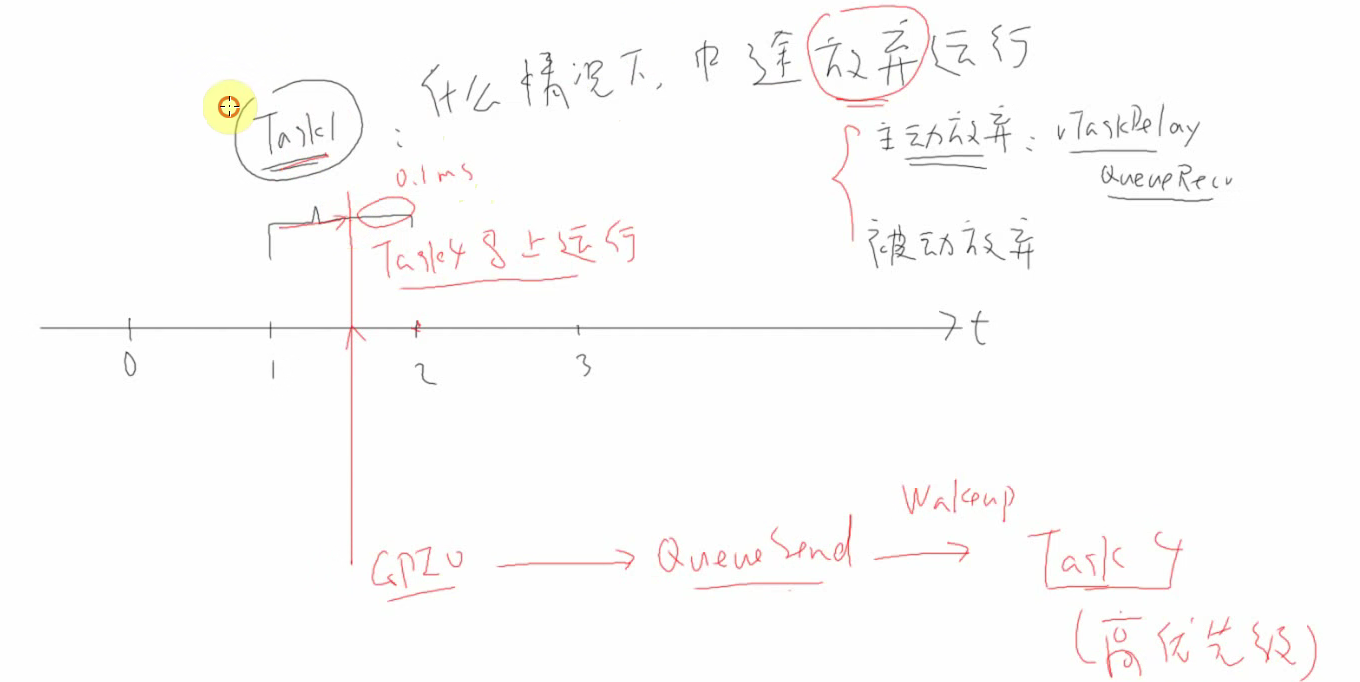 Task1 : 什么情况下, 中途放弃运行
主动放弃: vTaskDelay
QueueRecv
被动放弃
0.1ms
Task4马上运行
0 1 2 3 t
GPIO → QueueSend → Task 4
Wakeup
(高优先级)